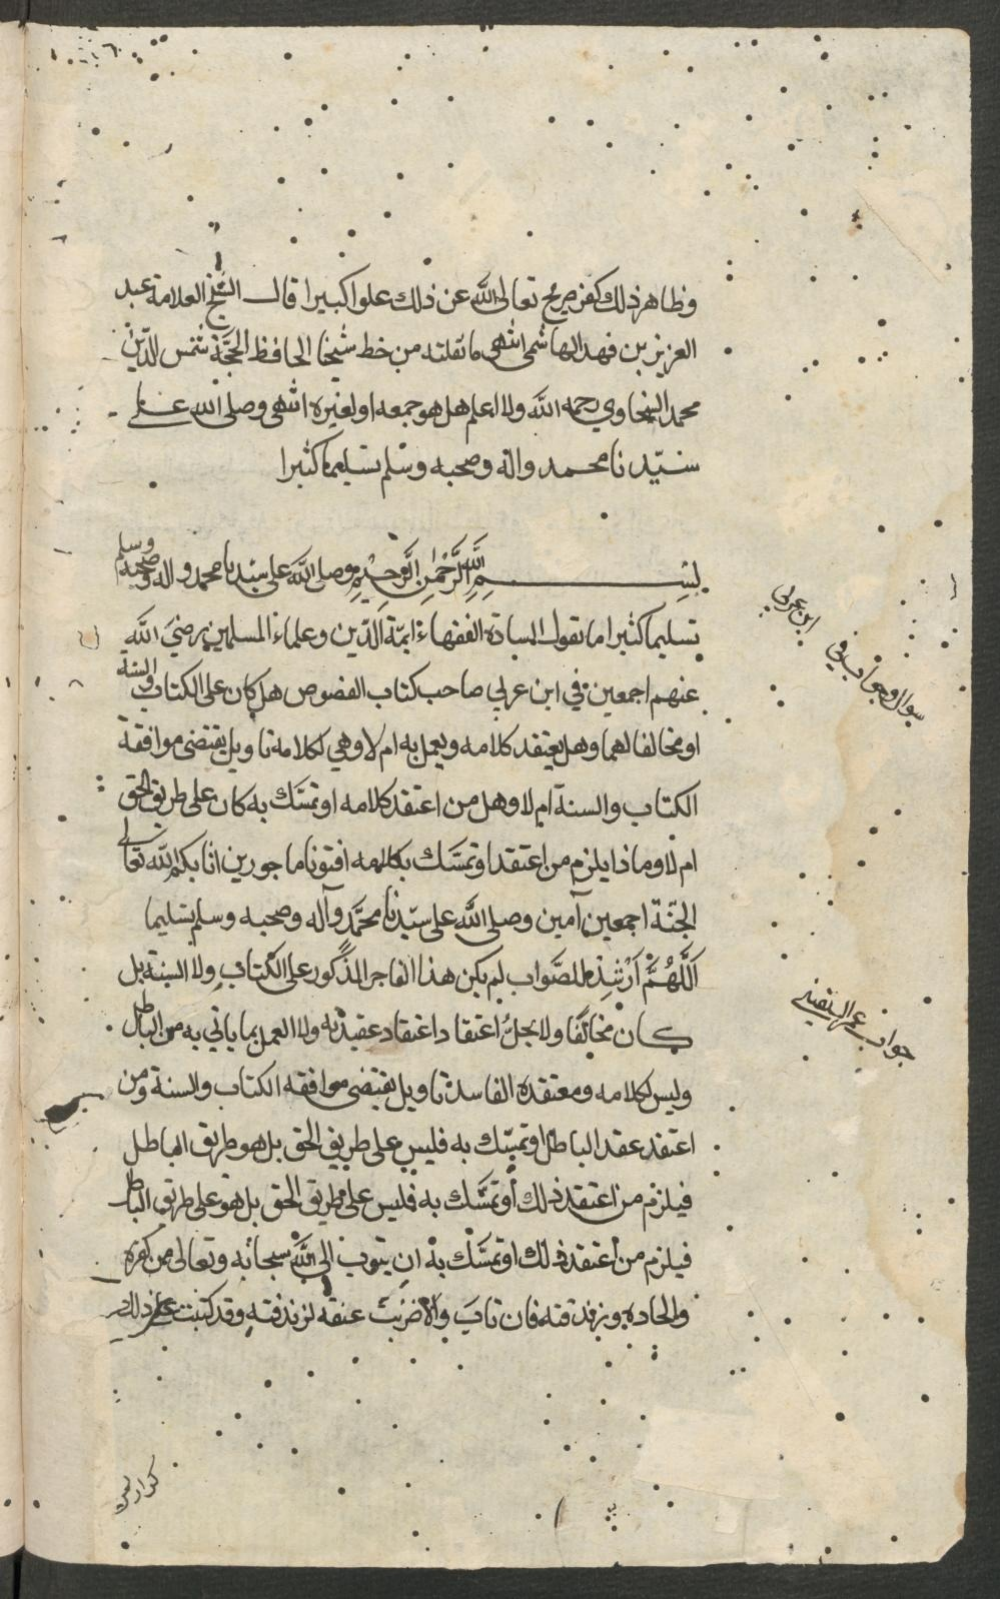 وظاهر ذلك كفر صريح تعالى الله عن ذلك علوا كبيرا قال الشيخ العلامة عبد
العزيز بن فهد الهاشمي انتهى ما نقلته من خط شيخنا الحافظ الحجة شمس الدين
محمد السخاوي رحمه الله ولا اعلم هل هو جمعه او لغيره انتهى وصلى الله على
سيدنا محمد واله وصحبه وسلم تسليما كثيرا
بسم الله الرحمن الرحيم وصلى الله على سيدنا محمد واله وصحبه وسلم
تسليما كثيرا ما تقول السادة الفقهاء ائمة الدين وعلماء المسلمين رضي الله
عنهم اجمعين في ابن عربي صاحب كتاب الفصوص هل كان على الكتاب والسنة
او مخالفا لهما وهل يعتقد كلامه ويعمل به ام لا وهي لكلامه تاويل يقتضى موافقة
الكتاب والسنة ام لا وهل من اعتقد كلامه او تمسك به كان على طريق الحق
ام لا وماذا يلزم من اعتقد او تمسك بكلامه افتونا ماجورين اثابكم الله تعالى
الجنة اجمعين آمين وصلى الله على سيدنا محمد وآله وصحبه وسلم تسليما
اللهم ارشد للصواب لم يكن هذا الفاجر المذكور على الكتاب ولا السنة بل
كان مخالفا ولا يحل اعتقاد اعتقاد عقيدته ولا العمل بما ياتي به من الباطل
وليس لكلامه ومعتقده الفاسد تاويل يقتضى موافقه الكتاب والسنة ومن
اعتقد عقد الباطل او تمسك به فليس على طريق الحق بل هو طريق الباطل
فيلزم من اعتقد ذلك أو تمسك به فليس على طريق الحق بل هو على طريق الباطل
فيلزم من أعتقد ذلك او تمسك به ان يتوب الى الله سبحانه وتعالى من كفره
والحاده وزندقته فان تاب والا ضربت عنقه لزندقته وقد كتبت على ذلك
سوال وجواب في
ابن عربي
جواب عمر البلقيني